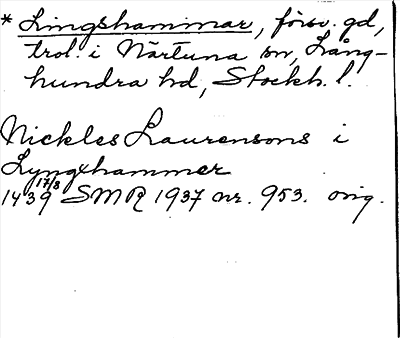 * Lingshammar, försv. gd,
trol. i Närtuna sn, Lång-
hundra hd, Stockh. l.
Nickles Laurensons i
Lyngxhammer
1439 17/3 SMR 1937 nr. 953. orig.